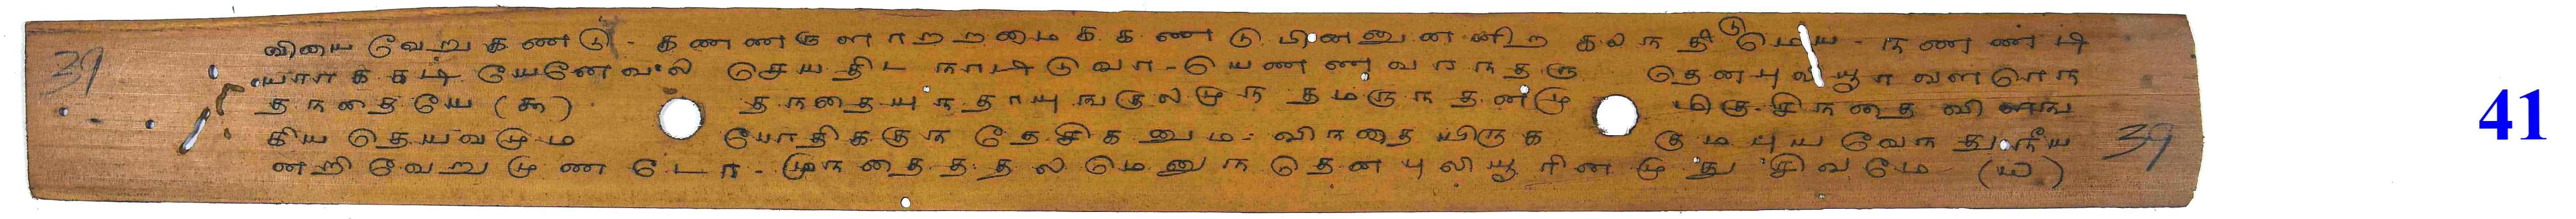 வியை வேறு கணடு - கணணகுளாறறமைக கணடு பினனுனனிற கலநதிடுமெய - நணணடி
யாாககடி யேனேவல செயதிட நாடிடுவா - யெணணுவாநதரு தெனபுலியூாவளரெந
தநதையே (௯) தநதையுநதாயுஙகுலமுந தமருநதனமு மிகு-சிநதை விளங
கிய தெயவமும யோதிககுந தேசிகனும - விநதை யிருக குமபுய வேநதுநீய
னறி வேறுமுணடோ - முநதைததலமெனுந தெனபுலியூரின முது சிவமே (ய)
39
39
41